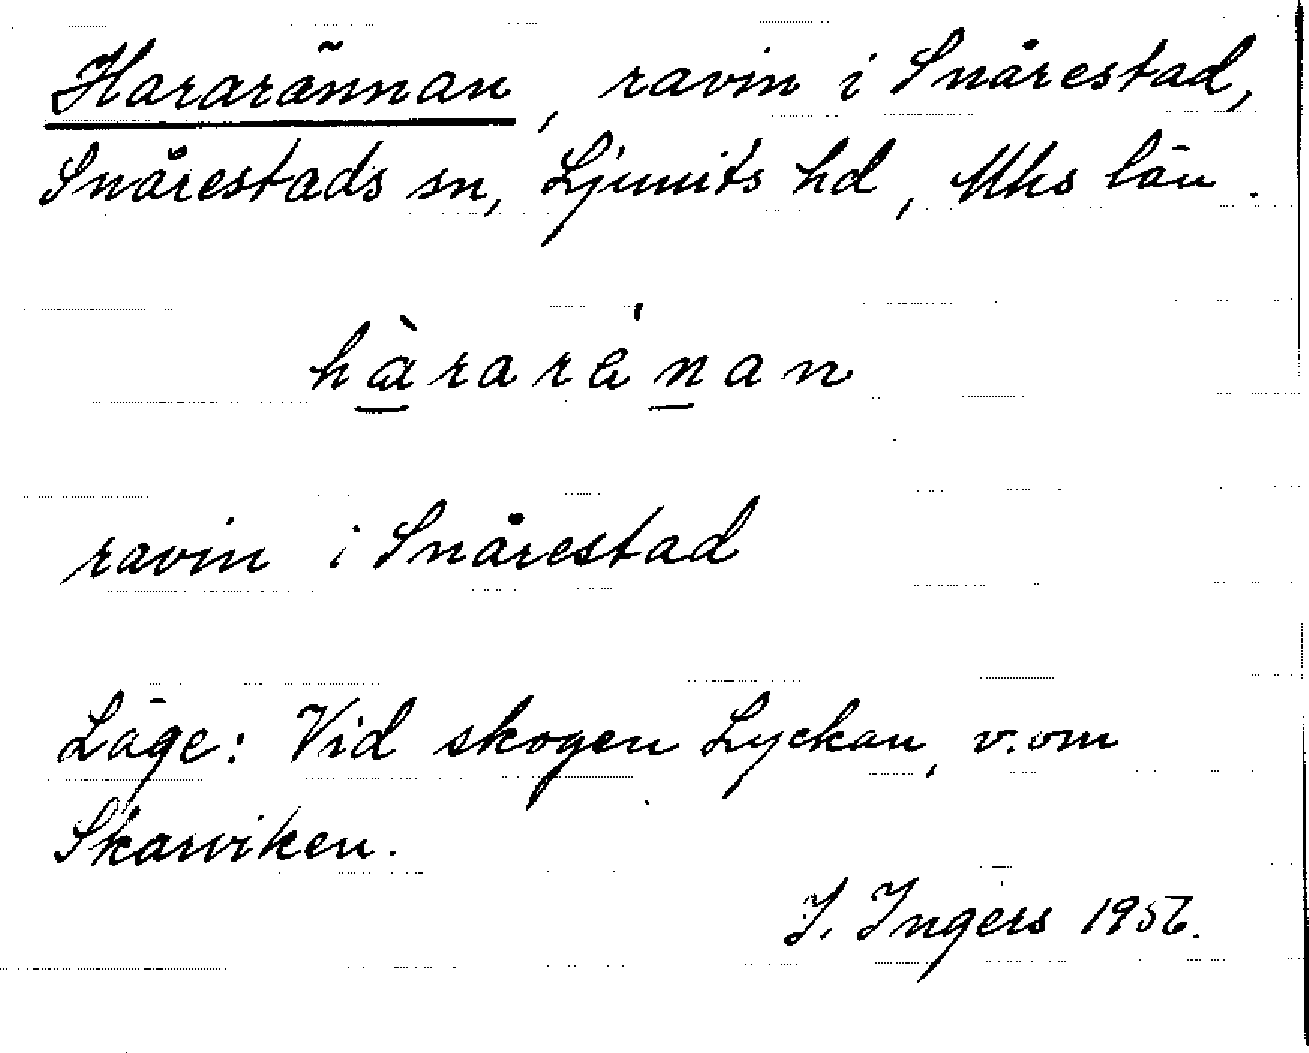 Hararännan, ravin i Snårestad,
Snårestads sn, Ljunits hd, Mhs län.
hàrarénan
ravin i Snårestad
Läge: Vid skogen Lyckan, v. om
Skarviken.
I. Ingers 1956.